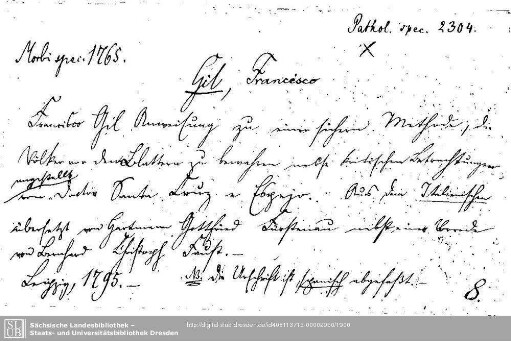 Pathol. spec. 2304.
X
Morbi spec. 1765.
Gil, Francesco
Francisco Gil Anweisung zu einer sichern Methode, die
Völker vor den Blattern zu bewahren nebst kritischen Betrachtungen
von Doctor Santa Cruz e Espejo. Aus dem Italienischen
übersetzt von Hartmann Gottfried
von Bernhard Christoph Faust.
Leipzig, 1795. — NB. die Urschrift ist spanisch abgefaßt. —
8.
SLUB
Sächsische Landesbibliothek –
Staats- und Universitätsbibliothek Dresden